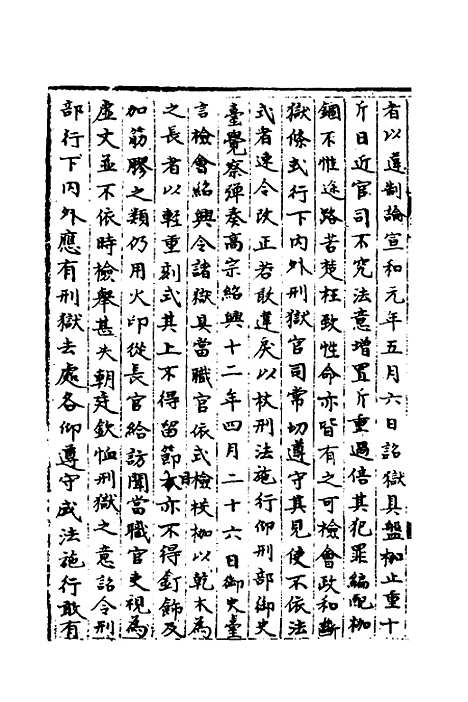 者以違制論宣和元年五月六日詔獄具盤枷止重十
斤日近官司不究法意增置斤重過倍其犯罪編配枷
錮不惟途路苦楚枉致性命亦皆有之可檢會政和斷
獄條式行下内外刑獄官司常切遵守其見使不依法
式者速令改正若敢違戾以杖刑法施行仰刑部御史
臺覺察彈奏高宗紹興十二年四月二十六日御史臺
言檢會紹興令諸獄具當職官依式檢校枷以乾木為
之長者以輕重刻式其上不得留節目亦不得釘飾及
加筋膠之類仍用火印從長官給訪聞當職官吏視為
虛文並不依時檢舉甚失朝廷欽恤刑獄之意詔令刑
部行下内外應有刑獄去處各仰遵守成法施行敢有